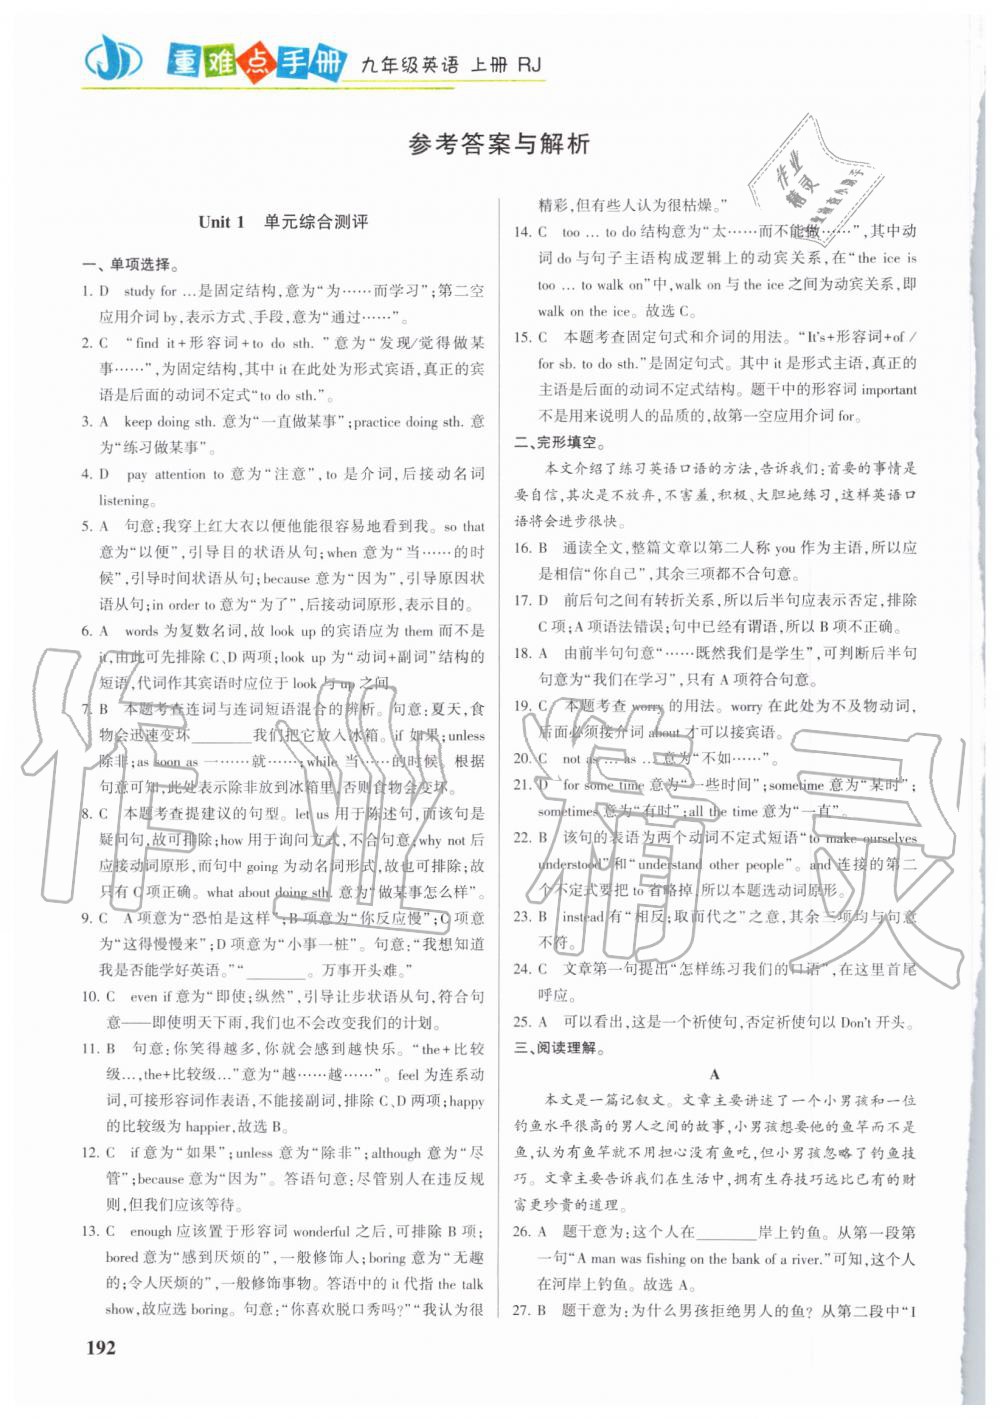 重难点手册 九年级英语 上册 RJ
参考答案与解析
Unit 1 单元综合测评
一、单项选择。
1. D study for …是固定结构,意为“为……而学习”;第二空
应用介词by,表示方式、手段,意为“通过……”。
2. C “find it+形容词+to do sth. ”意为“发现/觉得做某
事……”,为固定结构,其中it在此处为形式宾语,真正的宾
语是后面的动词不定式“to do sth.”。
3. A keep doing sth. 意为“一直做某事”;practice doing sth. 意
为“练习做某事”。
4. D pay attention to 意为“注意”,to 是介词,后接动名词
listening。
5. A 句意:我穿上红大衣以便他能很容易地看到我。so that
意为“以便”,引导目的状语从句;when 意为“当……的时
候”,引导时间状语从句;because 意为“因为”,引导原因状语
从句;in order to 意为“为了”,后接动词原形,表示目的。
6. A words 为复数名词,故 look up 的宾语应为 them 而不是
it,由此可先排除 C、D 两项;look up 为“动词+副词”结构的
短语,代词作其宾语时应位于 look 与 up 之间。
7. B 本题考查连词与连词短语混合的辨析。句意:夏天,食
物会迅速变坏________我们把它放入冰箱。if 如果;unless
除非;as soon as 一……就……;while 当……的时候。根据
句意可知,此处表示除非放到冰箱里,否则食物会变坏。
8. C 本题考查提建议的句型。let us 用于陈述句,而该句是
疑问句,故可排除;how 用于询问方式,不合句意;why not 后
应接动词原形,而句中 going 为动名词形式,故也可排除;故
只有 C 项正确。what about doing sth. 意为“做某事怎么样”。
9. C A项意为“恐怕是这样”;B 项意为“你反应慢”;C项意
为“这得慢慢来”;D 项意为“小事一桩”。句意:“我想知道
我是否能学好英语。”“________。万事开头难。”
10. C even if 意为“即使;纵然”,引导让步状语从句,符合句
意——即使明天下雨,我们也不会改变我们的计划。
11. B 句意:你笑得越多,你就会感到越快乐。“the+比较
级…,the+比较级…”意为“越……越……”。feel 为连系动
词,可接形容词作表语,不能接副词,排除 C、D 两项,happy
的比较级为 happier,故选 B。
12. C if意为“如果”;unless意为“除非”;although 意为“尽
管”;because 意为“因为”。答语句意:尽管别人在违反规
则,但我们应该等待。
13. C enough 应该置于形容词 wonderful 之后,可排除 B 项;
bored 意为“感到厌烦的”,一般修饰人;boring 意为“无趣
的;令人厌烦的”,一般修饰事物。答语中的 it 代指 the talk
show,故应选 boring。句意:“你喜欢脱口秀吗?”“我认为很
精彩,但有些人认为很枯燥。”
14. C too … to do 结构意为“太……而不能做……”,其中动
词 do 与句子主语构成逻辑上的动宾关系,在“the ice is
too … to walk on”中,walk on 与 the ice 之间为动宾关系,即
walk on the ice。故选 C。
15. C 本题考查固定句式和介词的用法。“It's+形容词+of /
for sb. to do sth.”是固定句式。其中 it 是形式主语,真正的
主语是后面的动词不定式结构。题干中的形容词 important
不是用来说明人的品质的,故第一空应用介词 for。
二、完形填空。
本文介绍了练习英语口语的方法,告诉我们:首要的事情是
要自信,其次是不放弃,不害羞,积极、大胆地练习,这样英语口
语将会进步很快。
16. B 通读全文,整篇文章以第二人称 you 作为主语,所以应
是相信“你自己”,其余三项都不合句意。
17. D 前后句之间有转折关系,所以后半句应表示否定,排除
C 项;A 项语法错误;句中已经有谓语,所以 B 项不正确。
18. A 由前半句句意“……既然我们是学生”,可判断后半句
句意为“我们在学习”,只有 A 项符合句意。
19. C 本题考查 worry 的用法。worry 在此处为不及物动词,
后面必须接介词 about 才可以接宾语。
20. C not as … as …意为“不如……”。
21. D for some time 意为“一些时间”;sometime 意为“某时”;
sometimes 意为“有时”;all the time 意为“一直”。
22. B 该句的表语为两个动词不定式短语“to make ourselves
understood”和“understand other people”。and 连接的第二
个不定式要把 to 省略掉,所以本题选动词原形。
23. B instead 有“相反;取而代之”之意,其余三项均与句意
不符。
24. C 文章第一句提出“怎样练习我们的口语”,在这里首尾
呼应。
25. A 可以看出,这是一个祈使句,否定祈使句以 Don't 开头。
三、阅读理解。
A
本文是一篇记叙文。文章主要讲述了一个小男孩和一位
钓鱼水平很高的男人之间的故事,小男孩想要男人的鱼竿而不是
鱼,认为有鱼竿就不用担心没有鱼吃,但小男孩忽略了钓鱼技
巧。文章主要告诉我们在生活中,拥有生存技巧远比有形的财
富更珍贵的道理。
26. A 题干意为:这个人在________岸上钓鱼。从第一段第
一句“A man was fishing on the bank of a river.”可知,这个人
在河岸上钓鱼。故选 A。
27. B 题干意为:为什么男孩拒绝男人的鱼? 从第二段中“I
192
作业精灵
作业精灵